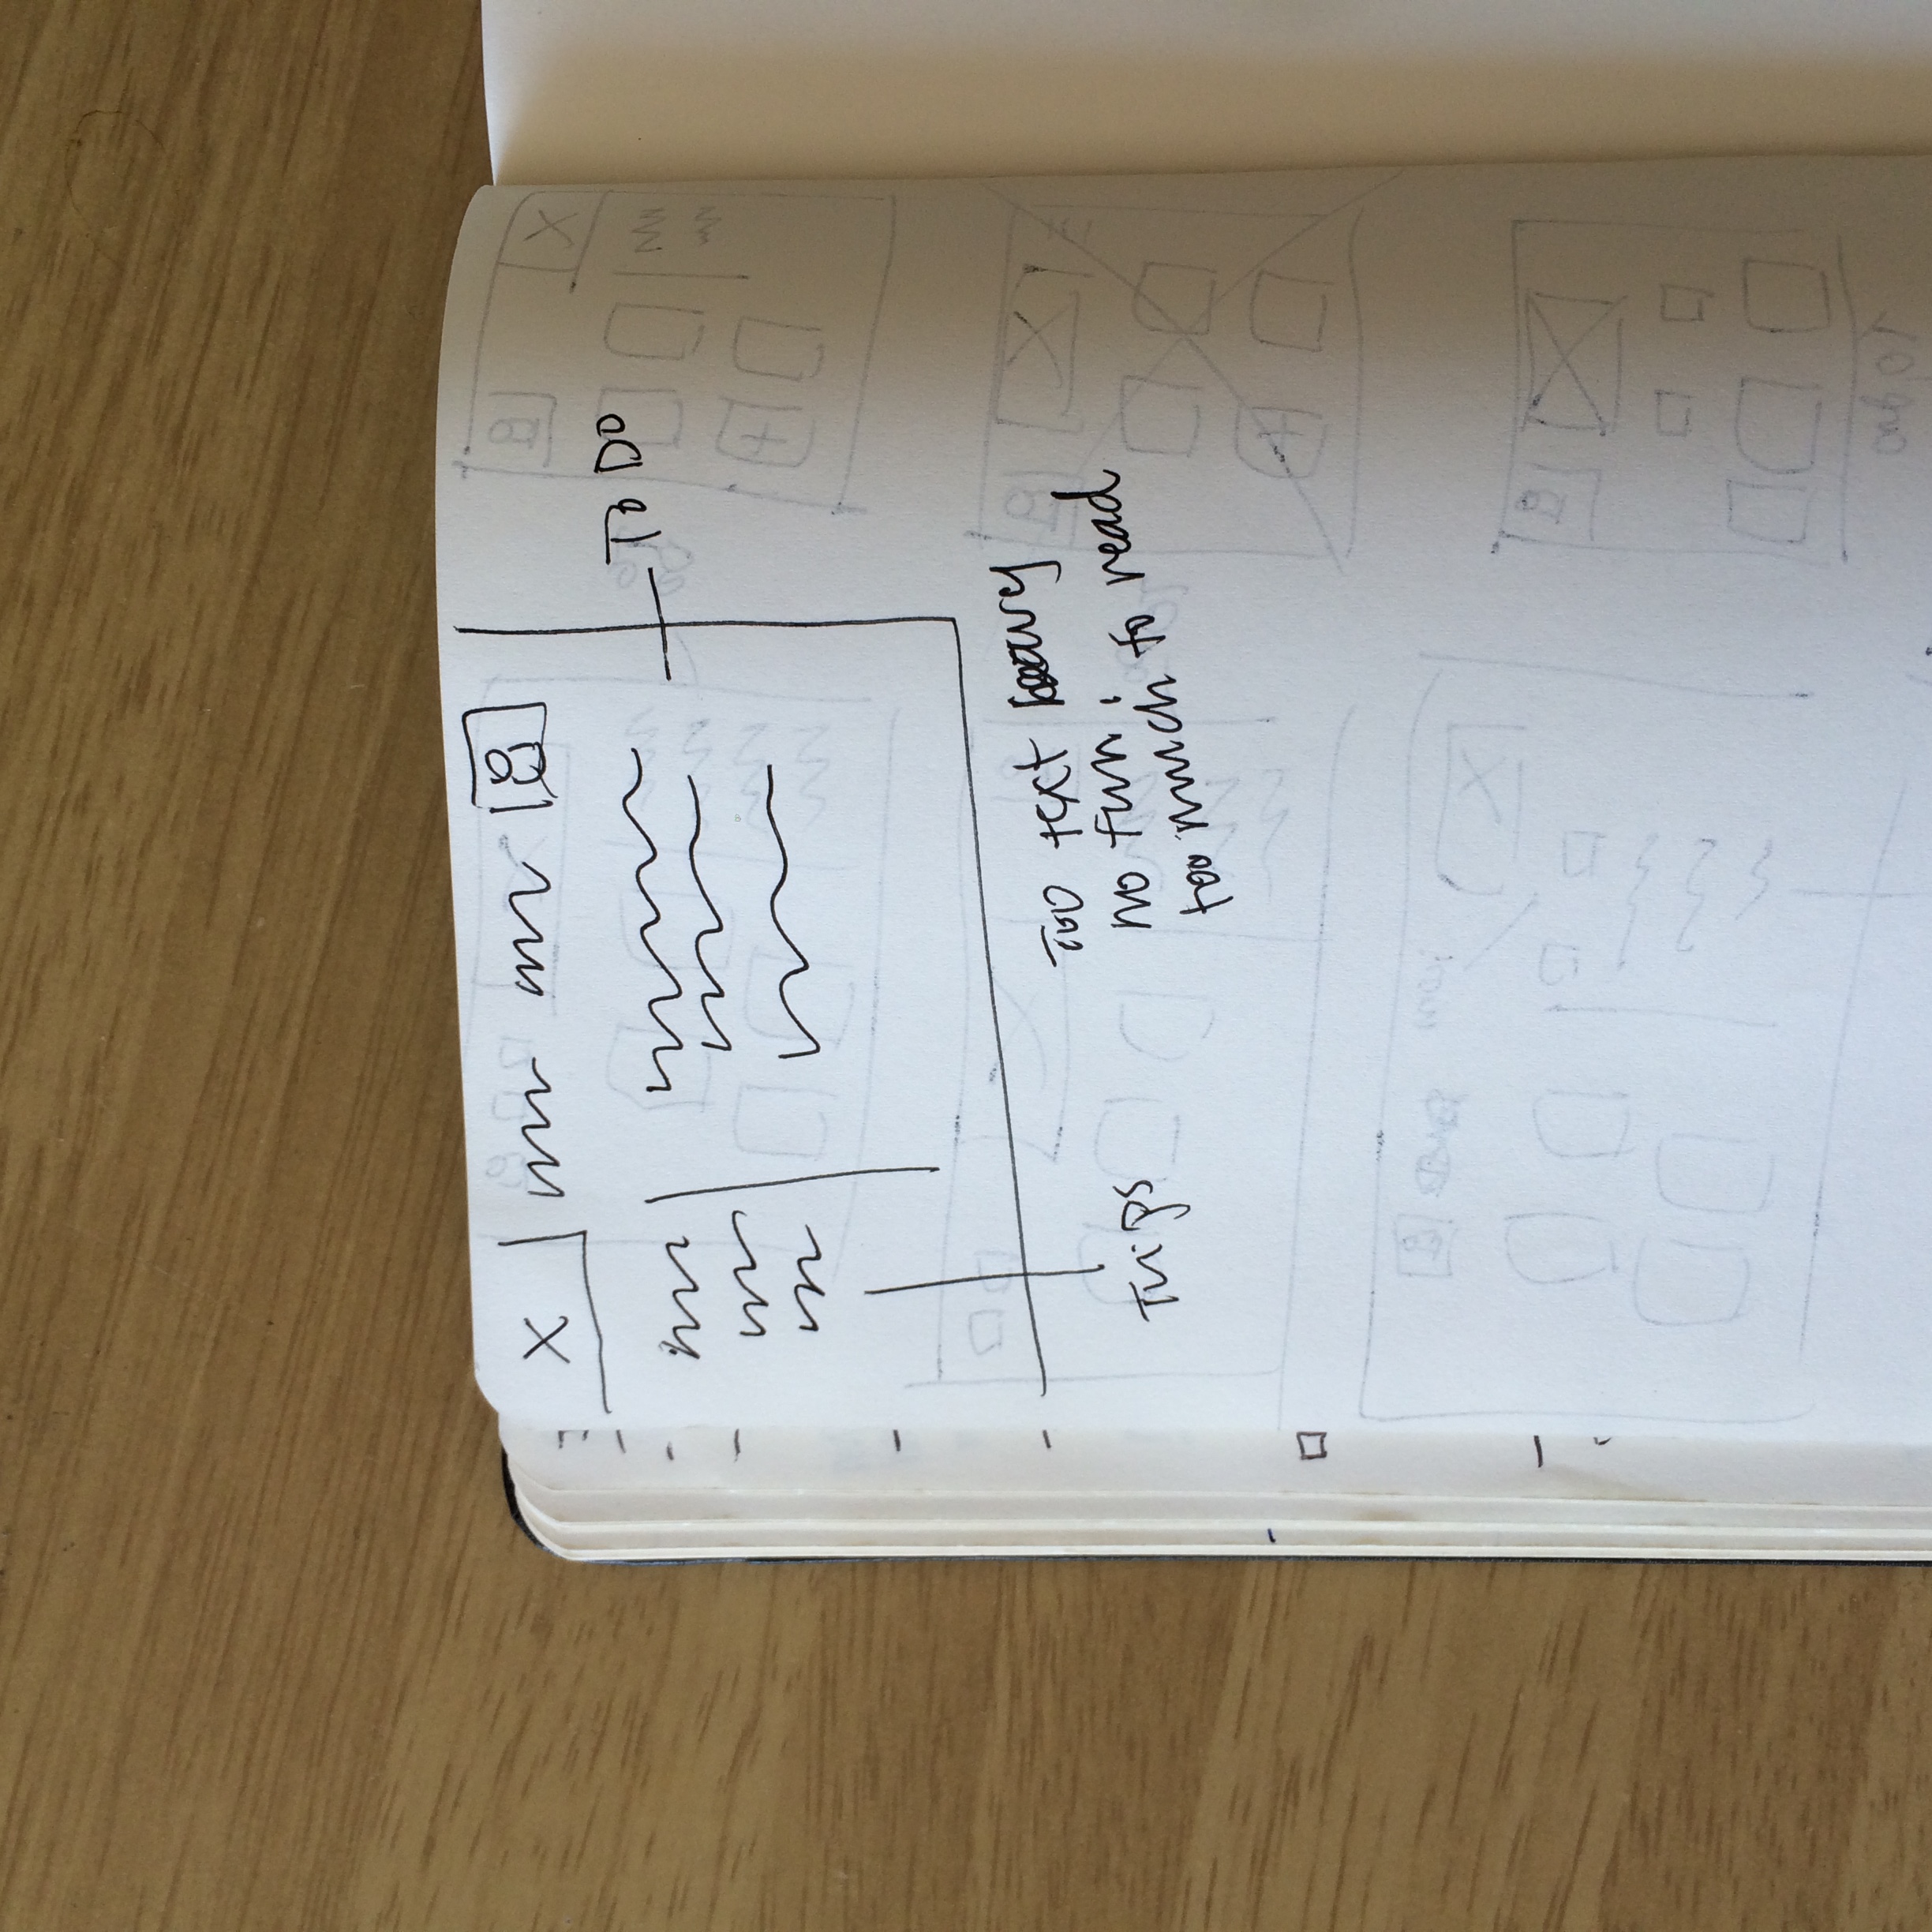 To Do
Trips
Too text heavy
no fun!
too much to read